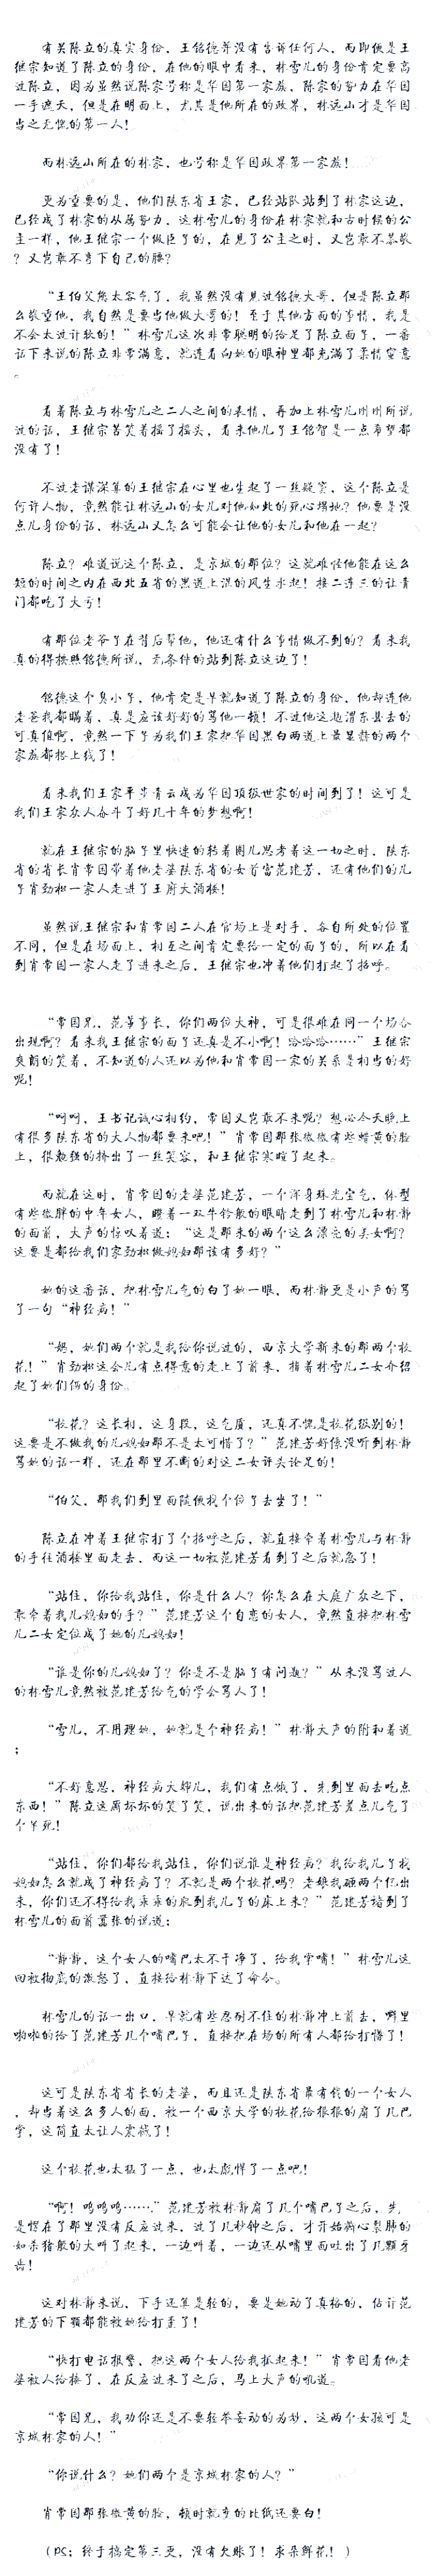 有关陈立的真实身份，王铭德并没有告诉任何人，而即使是王
继宗知道了陈立的身份，在他的眼中看来，林雪儿的身份肯定要高
过陈立，因为虽然说陈家号称是华国第一家族，陈家的势力在华国
一手遮天，但是在明面上，尤其是他所在的政界，林远山才是华国
当之无愧的第一人！
而林远山所在的林家，也号称是华国政界第一家族！
更为重要的是，他们陕东省王家，已经站队站到了林家这边，
已经成了林家的从属势力，这林雪儿的身份在林家就和古时候的公
主一样，他王继宗一个做臣子的，在见了公主之时，又岂敢不恭敬
？又岂敢不弯下自己的腰？
“王伯父您太客气了，我虽然没有见过铭德大哥，但是陈立那
么敬重他，我自然是要当他做大哥的！至于其他方面的事情，我是
不会太过计较的！”林雪儿这次非常聪明的给足了陈立面子，一番
话下来说的陈立非常满意，就连看向她的眼神里都充满了柔情蜜意
。
看着陈立与林雪儿之二人之间的表情，再加上林雪儿刚刚所说
过的话，王继宗苦笑着摇了摇头，看来他儿子王铭智是一点希望都
没有了！
不过老谋深算的王继宗在心里也生起了一丝疑窦，这个陈立是
何许人物，竟然能让林远山的女儿对他如此的死心塌地？他要是没
点儿身份的话，林远山又怎么可能会让他的女儿和他在一起？
陈立？难道说这个陈立，是京城的那位？这就难怪他能在这么
短的时间之内在西北五省的黑道上混的风生水起！接二连三的让青
门都吃了大亏！
有那位老爷子在背后帮他，他还有什么事情做不到的？看来我
真的得按照铭德所说，无条件的站到陈立这边了！
铭德这个臭小子，他肯定是早就知道了陈立的身份，他却连他
老爸我都瞒着，真是应该好好的骂他一顿！不过他这趟渭东县去的
可真值啊，竟然一下子为我们王家把华国黑白两道上最显赫的两个
家族都搭上线了！
看来我们王家平步青云成为华国顶级世家的时间到了！这可是
我们王家众人奋斗了好几十年的梦想啊！
就在王继宗的脑子里快速的转着圈儿思考着这一切之时，陕东
省的省长肖常国带着他老婆陕东省的女首富范建芳，还有他们的儿
子肖劲松一家人走进了王府大酒楼！
虽然说王继宗和肖常国二人在官场上是对手，各自所处的位置
不同，但是在场面上，相互之间肯定要给一定的面子的，所以在看
到肖常国一家人走了进来之后，王继宗也冲着他们打起了招呼。
“常国兄，范董事长，你们两位大神，可是很难在同一个场合
出现啊？看来我王继宗的面子还真是不小啊！哈哈哈……”王继宗
爽朗的笑着，不知道的人还以为他和肖常国一家的关系是相当的好
呢！
“呵呵，王书记诚心相约，常国又岂敢不来呢？想必今天晚上
有很多陕东省的大人物都要来吧！”肖常国那张微微有些蜡黄的脸
上，很勉强的挤出了一丝笑容，和王继宗寒暄了起来。
而就在这时，肖常国的老婆范建芳，一个浑身珠光宝气，体型
有些微胖的中年女人，瞪着一双牛铃般的眼睛走到了林雪儿和林静
的面前，大声的惊叹着道：“这是那来的两个这么漂亮的美女啊？
这要是都给我们家劲松做媳妇那该有多好？”
她的这番话，把林雪儿气的白了她一眼，而林静更是小声的骂
了一句“神经病！”
“妈，她们两个就是我给你说过的，西京大学新来的那两个校
花！”肖劲松这会儿有点得意的走上了前来，指着林雪儿二女介绍
起了她们俩的身份。
“校花？这长相，这身段，这气质，还真不愧是校花级别的！
这要是不做我的儿媳妇那不是太可惜了？”范建芳好像没听到林静
骂她的话一样，还在那里不断的对这二女评头论足的！
“伯父，那我们到里面随便找个位子去坐了！”
陈立在冲着王继宗打了个招呼之后，就直接牵着林雪儿与林静
的手往酒楼里面走去，而这一切被范建芳看到了之后就急了！
“站住，你给我站住，你是什么人？你怎么在大庭广众之下，
敢牵着我儿媳妇的手？”范建芳这个自恋的女人，竟然直接把林雪
儿二女定位成了她的儿媳妇！
“谁是你的儿媳妇了？你是不是脑子有问题？”从来没骂过人
的林雪儿竟然被范建芳给气的学会骂人了！
“雪儿，不用理她，她就是个神经病！”林静大声的附和着道
；
“不好意思，神经病大婶儿，我们有点饿了，先到里面去吃点
东西！”陈立这厮坏坏的笑了笑，说出来的话把范建芳差点儿气了
个半死！
“站住，你们都给我站住，你们说谁是神经病？我给我儿子找
媳妇怎么就成了神经病了？不就是两个校花吗？老娘我砸两个亿出
来，你们还不得给我乖乖的爬到我儿子的床上来？”范建芳堵到了
林雪儿的面前嚣张的说道；
“静静，这个女人的嘴巴太不干净了，给我掌嘴！”林雪儿这
回被彻底的激怒了，直接给林静下达了命令。
林雪儿的话一出口，早就有些忍耐不住的林静冲上前去，噼里
啪啦的给了范建芳几个嘴巴子，直接把在场的所有人都给打懵了！
这可是陕东省省长的老婆，而且还是陕东省最有钱的一个女人
，却当着这么多人的面，被一个西京大学的校花给狠狠的扇了几巴
掌，这简直太让人震撼了！
这个校花也太猛了一点，也太彪悍了一点吧！
“啊！呜呜呜……”范建芳被林静扇了几个嘴巴子之后，先
是愣在了那里没有反应过来，过了几秒钟之后，才开始撕心裂肺的
如杀猪般的大叫了起来，一边叫着，一边还从嘴里面吐出了几颗牙
齿！
这对林静来说，下手还算是轻的，要是她动了真格的，估计范
建芳的下颚都能被她给打歪了！
“快打电话报警，把这两个女人给我抓起来！”肖常国看他老
婆被人给揍了，在反应过来了之后，马上大声的吼道。
“常国兄，我劝你还是不要轻举妄动的为妙，这两个女孩可是
京城林家的人！”
“你说什么？她们两个是京城林家的人？”
肖常国那张微黄的脸，顿时就变的比纸还要白！
（PS：终于搞定第三更，没有欠账了！求朵鲜花！）